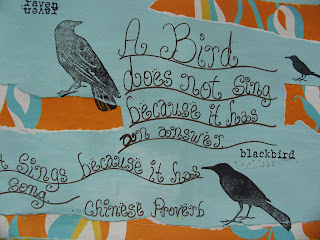 raven
raven
A Bird
does not sing
because it has
an answer.
blackbird
t sings because it has
song
... Chinese Proverb